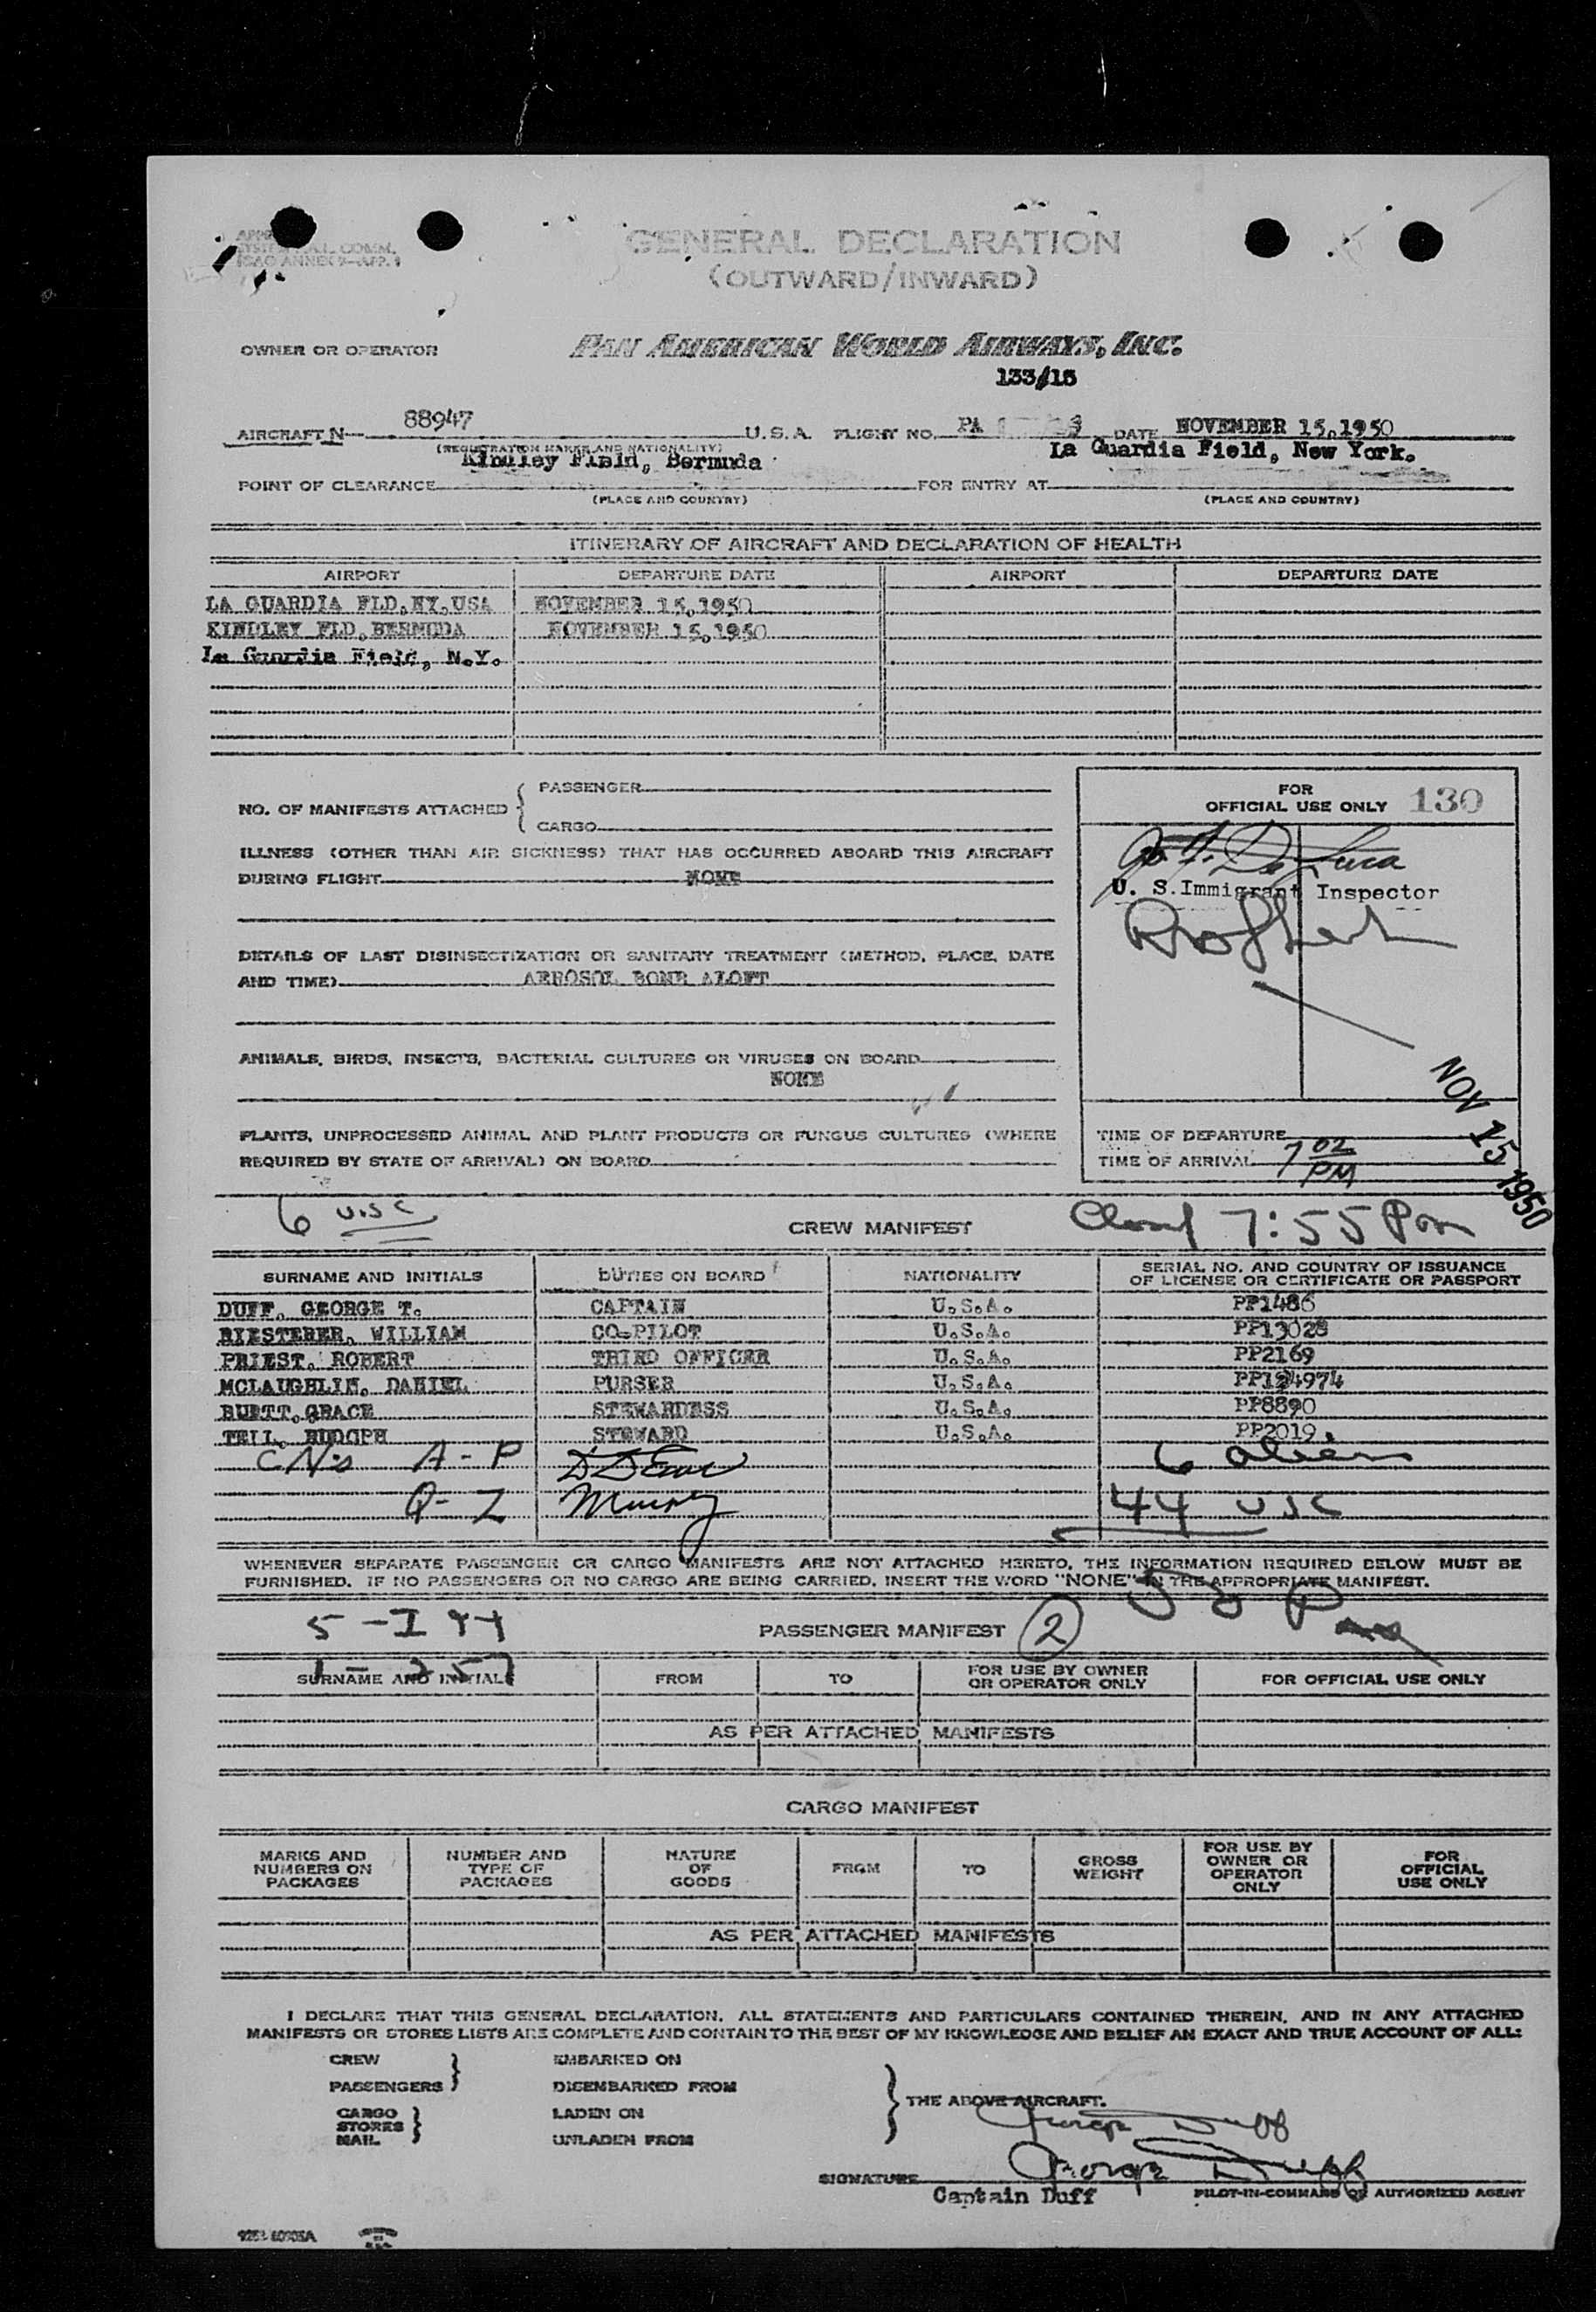 GENERAL DECLARATION
(OUTWARD/INWARD)
OWNER OR OPERATOR PAN AMERICAN WORLD AIRWAYS, INC.
133/15
AIRCRAFT N 88947 U.S.A. FLIGHT NO. PA DATE NOVEMBER 15,1950
(REGISTRATION MARKS AND NATIONALITY)
Kindley Field, Bermuda La Guardia Field, New York.
POINT OF CLEARANCE FOR ENTRY AT
(PLACE AND COUNTRY) (PLACE AND COUNTRY)
ITINERARY OF AIRCRAFT AND DECLARATION OF HEALTH
AIRPORT DEPARTURE DATE AIRPORT DEPARTURE DATE
LA GUARDIA FLD,NY,USA NOVEMBER 15,1950
KINDLEY FLD,BERMUDA NOVEMBER 15,1950
La Guardia Field, N.Y.
NO. OF MANIFESTS ATTACHED { PASSENGER
CARGO
FOR
OFFICIAL USE ONLY 130
ILLNESS (OTHER THAN AIR SICKNESS) THAT HAS OCCURRED ABOARD THIS AIRCRAFT
DURING FLIGHT NONE
U. S. Immigrant Inspector
DETAILS OF LAST DISINSECTIZATION OR SANITARY TREATMENT (METHOD, PLACE, DATE
AND TIME) AEROSOL BOMB ALOFT
ANIMALS, BIRDS, INSECTS, BACTERIAL CULTURES OR VIRUSES ON BOARD
NONE
NOV 15 1950
PLANTS, UNPROCESSED ANIMAL AND PLANT PRODUCTS OR FUNGUS CULTURES (WHERE
REQUIRED BY STATE OF ARRIVAL) ON BOARD
TIME OF DEPARTURE
TIME OF ARRIVAL 7 02 PM
6 U.S.C
CREW MANIFEST
7:55 Pm
SURNAME AND INITIALS DUTIES ON BOARD NATIONALITY SERIAL NO. AND COUNTRY OF ISSUANCE
OF LICENSE OR CERTIFICATE OR PASSPORT
DUFF, GEORGE T. CAPTAIN U.S.A. PP1486
RIESTERER, WILLIAM CO-PILOT U.S.A. PP13028
PRIEST, ROBERT THIRD OFFICER U.S.A. PP2169
MCLAUGHLIN, DANIEL PURSER U.S.A. PP124974
BUETT,GRACE STEWARDESS U.S.A. PP8890
TELL, RUDOPH STEWARD U.S.A. PP2019
A - P 6 aliens
Q - Z Murphy 44 USC
WHENEVER SEPARATE PASSENGER OR CARGO MANIFESTS ARE NOT ATTACHED HERETO, THE INFORMATION REQUIRED BELOW MUST BE
FURNISHED. IF NO PASSENGERS OR NO CARGO ARE BEING CARRIED, INSERT THE WORD "NONE" IN THE APPROPRIATE MANIFEST.
5 - I 44
PASSENGER MANIFEST 2
1 - 257
SURNAME AND INITIALS FROM TO FOR USE BY OWNER
OR OPERATOR ONLY FOR OFFICIAL USE ONLY
AS PER ATTACHED MANIFESTS
CARGO MANIFEST
MARKS AND
NUMBERS ON
PACKAGES
NUMBER AND
TYPE OF
PACKAGES
NATURE
OF
GOODS
FROM
TO
GROSS
WEIGHT
FOR USE BY
OWNER OR
OPERATOR
ONLY
FOR
OFFICIAL
USE ONLY
AS PER ATTACHED MANIFESTS
I DECLARE THAT THIS GENERAL DECLARATION, ALL STATEMENTS AND PARTICULARS CONTAINED THEREIN, AND IN ANY ATTACHED
MANIFESTS OR STORES LISTS ARE COMPLETE AND CONTAIN TO THE BEST OF MY KNOWLEDGE AND BELIEF AN EXACT AND TRUE ACCOUNT OF ALL:
CREW EMBARKED ON
PASSENGERS DISEMBARKED FROM
THE ABOVE AIRCRAFT.
CARGO LADEN ON
STORES
MAIL UNLADEN FROM
George Duff
SIGNATURE George Duff
Captain Duff PILOT-IN-COMMAND OR AUTHORIZED AGENT